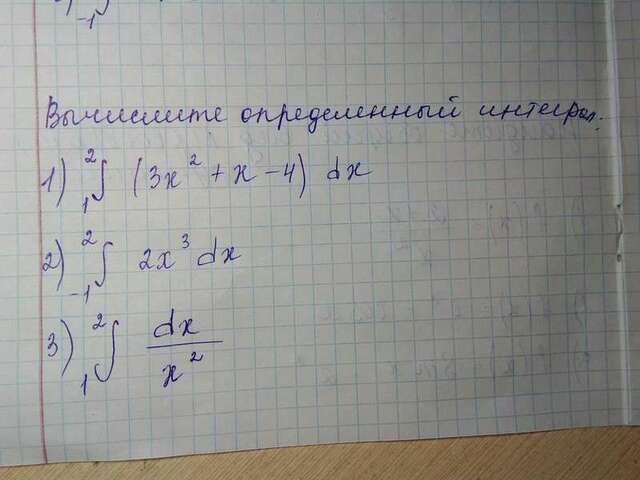 -1
Вычислите определенный интеграл:
1) ₁²∫ (3x² + x - 4) dx
2) ₋₁²∫ 2x³ dx
3) ₁²∫ dx/x²